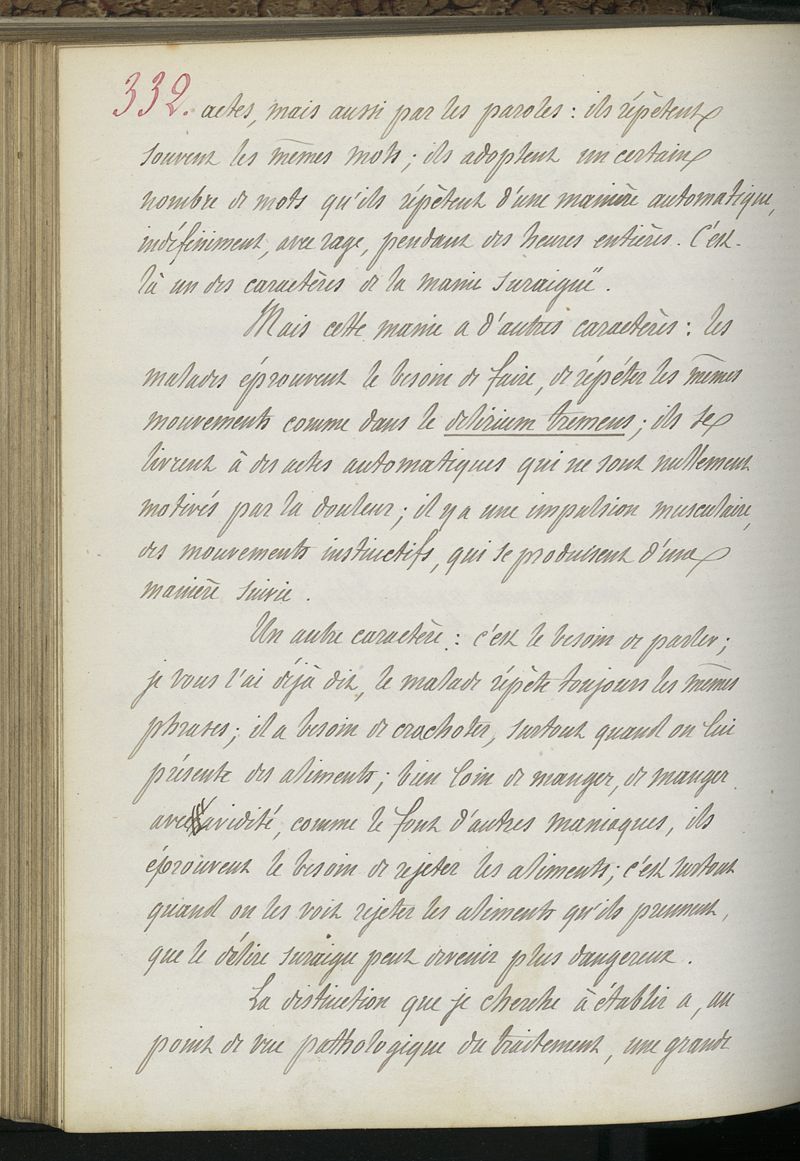 332. actes, mais aussi par les paroles : ils répètent
souvent les mêmes mots ; ils adoptent un certain
nombre de mots qu'ils répètent d'une manière automatique,
indéfiniment, avec rage, pendant des heures entières. C'est
là un des caractères de la manie suraiguë.
Mais cette manie a d'autres caractères : les
malades éprouvent le besoin de faire, de répéter les mêmes
mouvements comme dans le delirium tremens ; ils se
livrent à des actes automatiques qui ne sont nullement
motivés par la douleur ; il y a une impulsion musculaire,
des mouvements instinctifs, qui se produisent d'une
manière suivie.
Un autre caractère : c'est le besoin de parler ;
je vous l'ai déjà dit, le malade répète toujours les mêmes
phrases ; il a besoin de crachoter, surtout quand on lui
présente des aliments ; bien loin de manger, de manger
avec avidité, comme le font d'autres maniaques, ils
éprouvent le besoin de rejeter les aliments ; c'est surtout
quand on les voit rejeter les aliments qu'ils prennent,
que le délire suraigu peut devenir plus dangereux.
La distinction que je cherche à établir a, au
point de vue pathologique du traitement, une grande